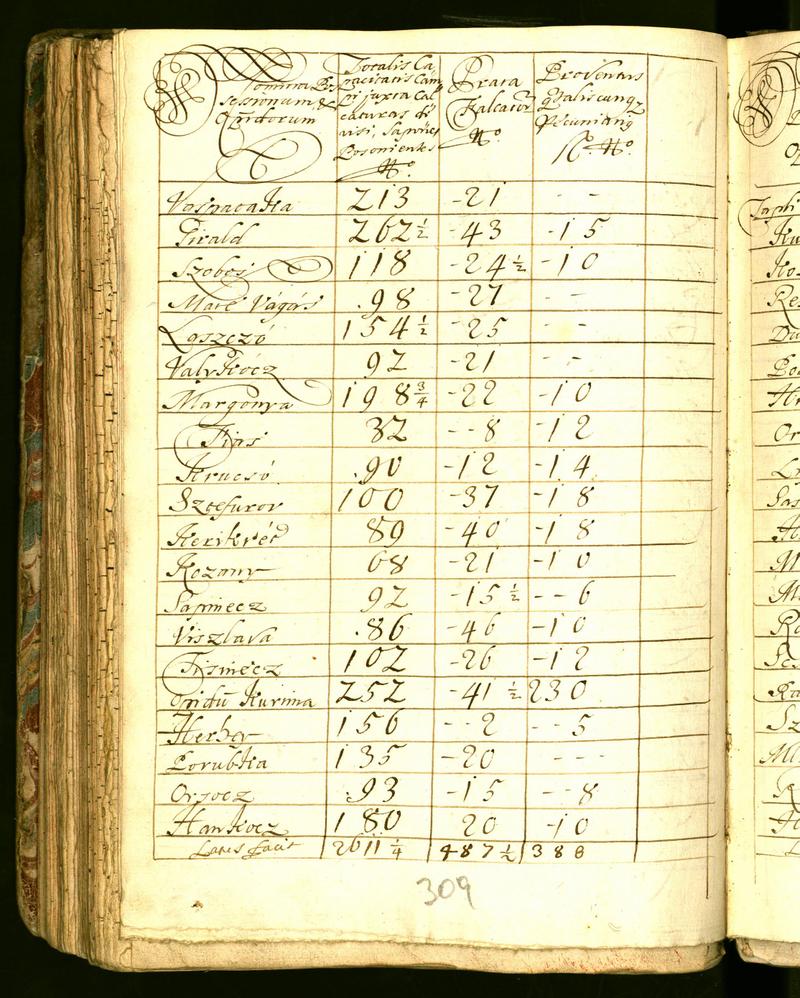 Nomina Pos
sessionum &
Opidorum
Totalis Ca
pacitatis Cam
pi juxta Cal
caturas di
visi, Sapiũes
Posonienses
No.
Prata
Falcator̃
No.
Proventus
Qualiscunq
Pecuniariq
No.
Vosnacatka 213 -21 - -
Girald 262 1/2 -43 -15
Szobos 118 -24 1/2 -10
Mate Vágás .98 -27 - -
Laszczó 154 1/2 -25 - -
Valykócz 92 -21 - -
Margonya 198 3/4 -22 -10
Fias 32 - -8 -12
Krucsó .90 -12 -14
Sztefuror 100 -37 -18
Kerekrét 89 -40 -18
Kozany 68 -21 -10
Sapinecz 92 -15 1/2 - -6
Viszlava .86 -46 -10
Tisinecz 102 -26 -12
Opidũ Kurima 252 -41 1/2 230
Herher 156 - -2 - -5
Porubka 135 -20 - - -
Orsocz .93 -15 - -8
Hankocz 180 20 -10
Latus facit 2611 1/4 487 1/2 388
309